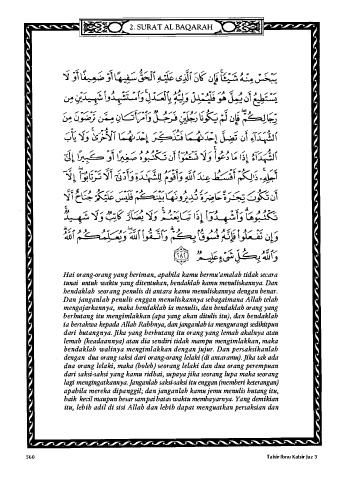 2. SURAT AL BAQARAH
يَبْخَسْ مِنْهُ شَيْـًٔا فَإِن كَانَ ٱلَّذِى عَلَيْهِ ٱلْحَقُّ سَفِيهًا أَوْ ضَعِيفًا أَوْ لَا
يَسْتَطِيعُ أَن يُمِلَّ هُوَ فَلْيُمْلِلْ وَلِيُّهُۥ بِٱلْعَدْلِ وَٱسْتَشْهِدُوا۟ شَهِيدَيْنِ مِن
رِّجَالِكُمْ فَإِن لَّمْ يَكُونَا رَجُلَيْنِ فَرَجُلٌ وَٱمْرَأَتَانِ مِمَّن تَرْضَوْنَ مِنَ
ٱلشُّهَدَآءِ أَن تَضِلَّ إِحْدَىٰهُمَا فَتُذَكِّرَ إِحْدَىٰهُمَا ٱلْأُخْرَىٰ وَلَا يَأْبَ
ٱلشُّهَدَآءُ إِذَا مَا دُعُوا۟ وَلَا تَسْـَٔمُوٓا۟ أَن تَكْتُبُوهُ صَغِيرًا أَوْ كَبِيرًا إِلَىٰٓ
أَجَلِهِۦ ذَٰلِكُمْ أَقْسَطُ عِندَ ٱللَّهِ وَأَقْوَمُ لِلشَّهَٰدَةِ وَأَدْنَىٰٓ أَلَّا تَرْتَابُوٓا۟ إِلَّآ
أَن تَكُونَ تِجَٰرَةً حَاضِرَةً تُدِيرُونَهَا بَيْنَكُمْ فَلَيْسَ عَلَيْكُمْ جُنَاحٌ أَلَّا
تَكْتُبُوهَا وَأَشْهِدُوٓا۟ إِذَا تَبَايَعْتُمْ وَلَا يُضَآرَّ كَاتِبٌ وَلَا شَهِيدٌ
وَإِن تَفْعَلُوا۟ فَإِنَّهُۥ فُسُوقٌۢ بِكُمْ وَٱتَّقُوا۟ ٱللَّهَ وَيُعَلِّمُكُمُ ٱللَّهُ
وَٱللَّهُ بِكُلِّ شَىْءٍ عَلِيمٌ ﴿٢٨٢﴾
Hai orang-orang yang beriman, apabila kamu bermu'amalah tidak secara
tunai untuk waktu yang ditentukan, hendaklah kamu menuliskannya. Dan
hendaklah seorang penulis di antara kamu menuliskannya dengan benar.
Dan janganlah penulis enggan menuliskannya sebagaimana Allah telah
mengajarkannya, maka hendaklah ia menulis, dan hendaklah orang yang
berhutang itu mengimlakkan (apa yang akan ditulis itu), dan hendaklah
ia bertakwa kepada Allah Rabbnya, dan janganlah ia mengurangi sedikitpun
dari hutangnya. Jika yang berhutang itu orang yang lemah akalnya atau
lemah (keadaannya) atau dia sendiri tidak mampu mengimlakkan, maka
hendaklah walinya mengimlakkan dengan jujur. Dan persaksikanlah
dengan dua orang saksi dari orang-orang lelaki (di antaramu). Jika tak ada
dua orang lelaki, maka (boleh) seorang lelaki dan dua orang perempuan
dari saksi-saksi yang kamu ridhai, supaya jika seorang lupa maka seorang
lagi mengingatkannya. Janganlah saksi-saksi itu enggan (memberi keterangan)
apabila mereka dipanggil; dan janganlah kamu jemu menulis hutang itu,
baik kecil maupun besar sampai batas waktu membayarnya. Yang demikian
itu, lebih adil di sisi Allah dan lebih dapat menguatkan persaksian dan
560
Tafsir Ibnu Katsir Juz 3